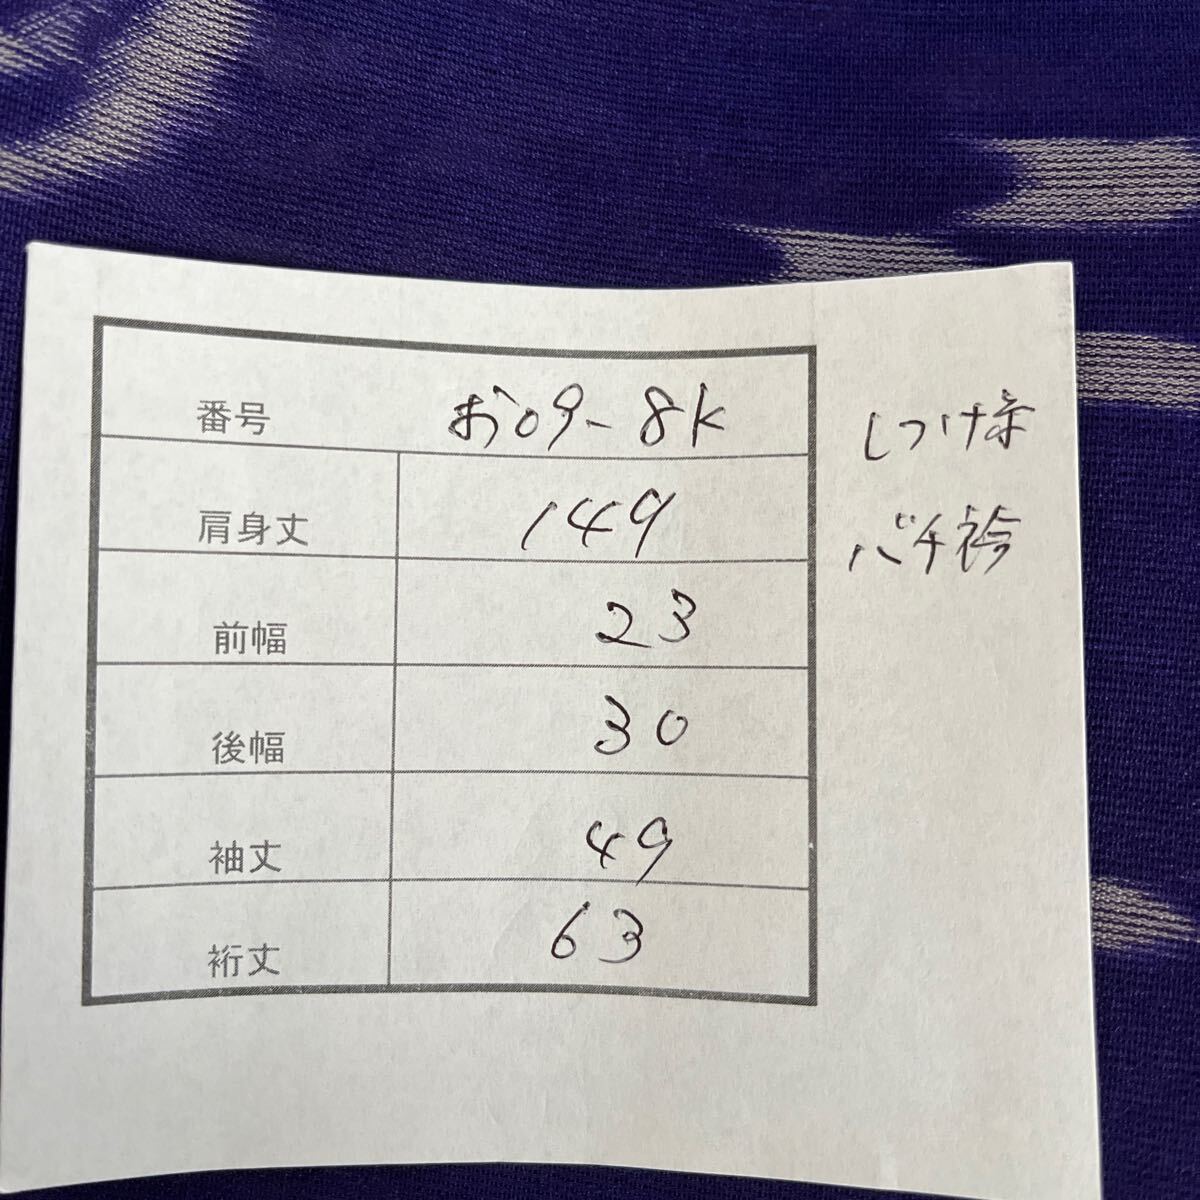 番号 お09-8K
肩身丈 149
前幅 23
後幅 30
袖丈 49
裄丈 63
しつけ糸
バチ衿